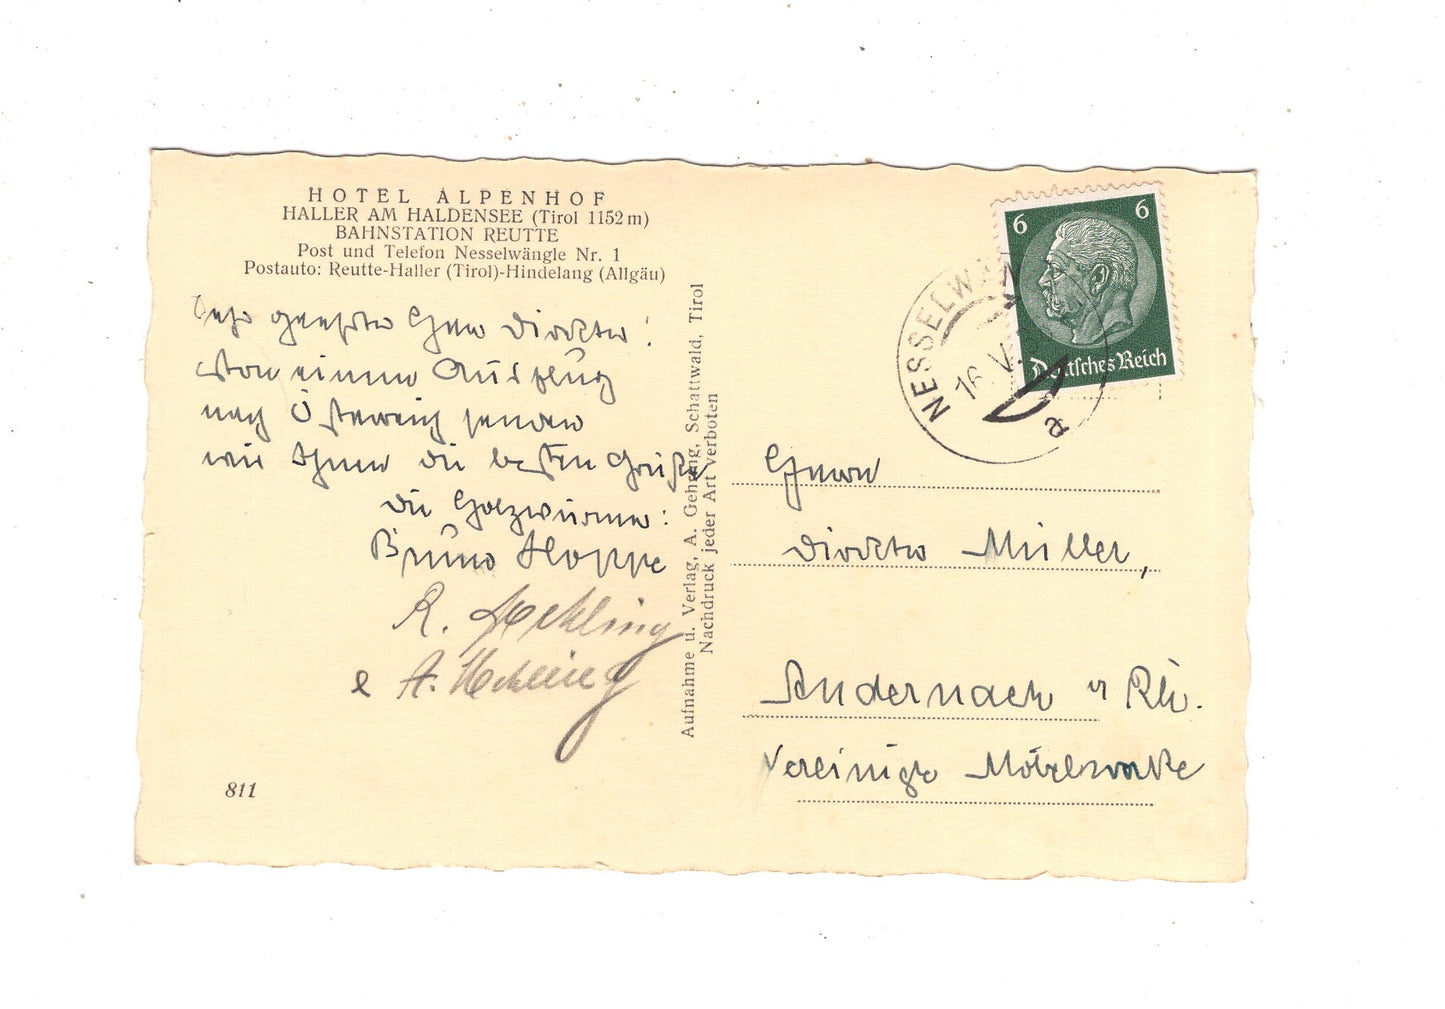 HOTEL ALPENHOF
HALLER AM HALDENSEE (Tirol 1152 m)
BAHNSTATION REUTTE
Post und Telefon Nesselwängle Nr. 1
Postauto: Reutte-Haller (Tirol)-Hindelang (Allgäu)
Sehr geehrter Herr Direktor!
Von einem Ausflug
nach Österreich senden
wir Ihnen die besten Grüße
die Holzwürmer:
Bruno Hoppe
R.
A.
811
Aufnahme u. Verlag, A. Gehring, Schattwald, Tirol
Nachdruck jeder Art verboten
6 6
Deutsches Reich
NESSELW
16. V.
a
Herrn
Direktor Müller,
Andernach a/ Rh.
Vereinigte Möbelwerke